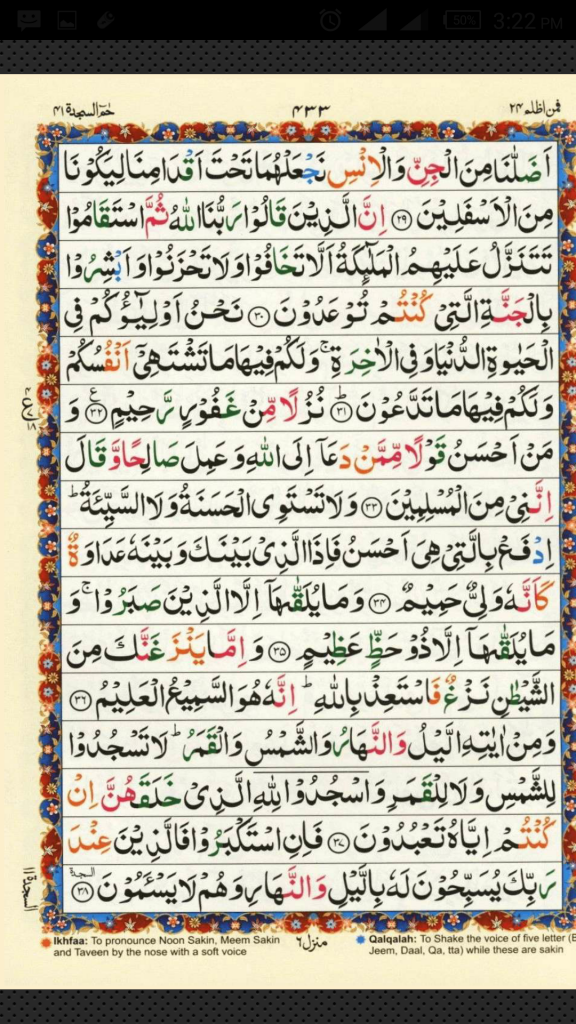 50% 3:22 PM
فمن اظلم ۲۴ ۴۳۳ حٰمٓ السجدة ۴۱
اَضَلّٰنَا مِنَ الْجِنِّ وَالْاِنْسِ نَجْعَلْهُمَا تَحْتَ اَقْدَامِنَا لِيَكُوْنَا
مِنَ الْاَسْفَلِيْنَ ۝۲۹ اِنَّ الَّذِيْنَ قَالُوْا رَبُّنَا اللّٰهُ ثُمَّ اسْتَقَامُوْا
تَتَنَزَّلُ عَلَيْهِمُ الْمَلٰٓئِكَةُ اَلَّا تَخَافُوْا وَلَا تَحْزَنُوْا وَاَبْشِرُوْا
بِالْجَنَّةِ الَّتِيْ كُنْتُمْ تُوْعَدُوْنَ ۝۳۰ نَحْنُ اَوْلِيٰٓؤُكُمْ فِي
الْحَيٰوةِ الدُّنْيَا وَفِي الْاٰخِرَةِ ۚ وَلَكُمْ فِيْهَا مَا تَشْتَهِيْٓ اَنْفُسُكُمْ
وَلَكُمْ فِيْهَا مَا تَدَّعُوْنَ ؕ۝۳۱ نُزُلًا مِّنْ غَفُوْرٍ رَّحِيْمٍ ۝۳۲ وَ
مَنْ اَحْسَنُ قَوْلًا مِّمَّنْ دَعَآ اِلَى اللّٰهِ وَعَمِلَ صَالِحًا وَّقَالَ
اِنَّنِيْ مِنَ الْمُسْلِمِيْنَ ۝۳۳ وَلَا تَسْتَوِي الْحَسَنَةُ وَلَا السَّيِّئَةُ ؕ
اِدْفَعْ بِالَّتِيْ هِيَ اَحْسَنُ فَاِذَا الَّذِيْ بَيْنَكَ وَبَيْنَهٗ عَدَاوَةٌ
كَاَنَّهٗ وَلِيٌّ حَمِيْمٌ ۝۳۴ وَمَا يُلَقّٰىهَآ اِلَّا الَّذِيْنَ صَبَرُوْا ۚ وَ
مَا يُلَقّٰىهَآ اِلَّا ذُوْ حَظٍّ عَظِيْمٍ ۝۳۵ وَاِمَّا يَنْزَغَنَّكَ مِنَ
الشَّيْطٰنِ نَزْغٌ فَاسْتَعِذْ بِاللّٰهِ ؕ اِنَّهٗ هُوَ السَّمِيْعُ الْعَلِيْمُ ۝۳۶
وَمِنْ اٰيٰتِهِ الَّيْلُ وَالنَّهَارُ وَالشَّمْسُ وَالْقَمَرُ ؕ لَا تَسْجُدُوْا
لِلشَّمْسِ وَلَا لِلْقَمَرِ وَاسْجُدُوْا لِلّٰهِ الَّذِيْ خَلَقَهُنَّ اِنْ
كُنْتُمْ اِيَّاهُ تَعْبُدُوْنَ ۝۳۷ فَاِنِ اسْتَكْبَرُوْا فَالَّذِيْنَ عِنْدَ
رَبِّكَ يُسَبِّحُوْنَ لَهٗ بِالَّيْلِ وَالنَّهَارِ وَهُمْ لَا يَسْئَمُوْنَ ۝۳۸ السجدة
السجدة ۱۱
منزل ۶
Ikhfaa: To pronounce Noon Sakin, Meem Sakin
and Taveen by the nose with a soft voice
Qalqalah: To Shake the voice of five letter (B
Jeem, Daal, Qa, tta) while these are sakin